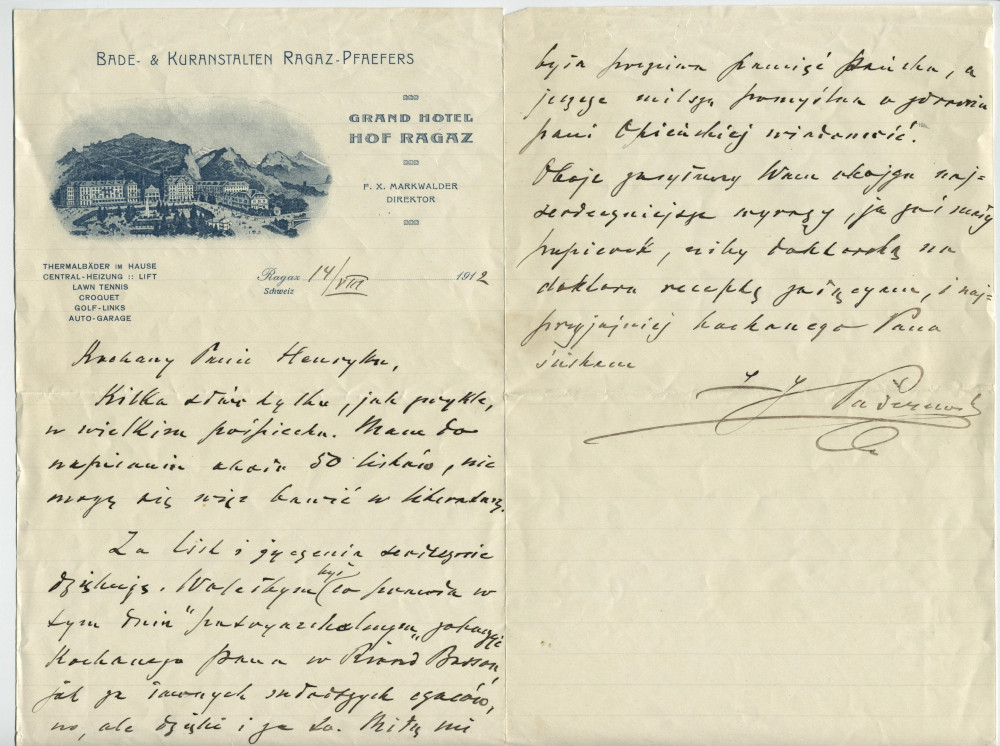 BADE- & KURANSTALTEN RAGAZ-PFAEFERS
GRAND HOTEL
HOF RAGAZ
F. X. MARKWALDER
DIREKTOR
THERMALBÄDER IM HAUSE
CENTRAL-HEIZUNG :: LIFT
LAWN TENNIS
CROQUET
GOLF-LINKS
AUTO-GARAGE
Ragaz 14/VIII 1912
Schweiz
Kochany Panie Henryku,
Kilka słów tylko, jak zwykle,
w wielkim pośpiechu. Mam do
napisania około 50 listów, nie
mogę się więc bawić w literaturę.
Za list i życzenia serdecznie
dziękuję. Wolałbym być co prawda w
tym dniu "patryarchalnym" zobaczyć
Kochanego Pana w Riond Bosson
jak za dawnych młodszych czasów,
no, ale dzięki i za to. Miłą mi
była poczciwa pamięć Pańska, a
jeszcze milszą pomyślna o zdrowiu
pani Opieńskiej wiadomość.
Oboje zasyłamy Wam obojgu naj=
serdeczniejsze wyrazy, ja zaś mały
papierek, niby doktorską na
doktora receptę załączam, i naj=
przyjaźniej kochanego Pana
ściskam
I J Paderewski